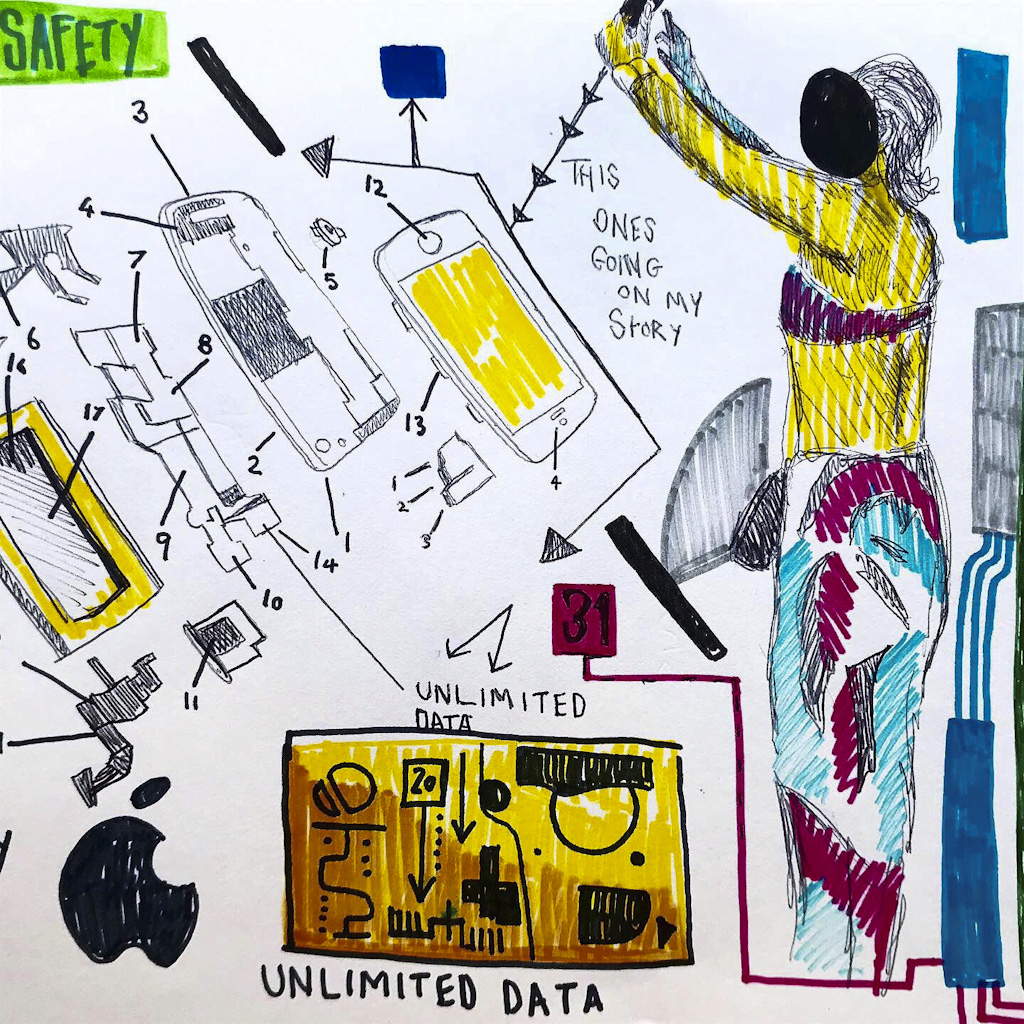 SAFETY
3
4
12
THIS
ONES
GOING
ON MY
StORY
7
5
6
8
16
17
13
2
1
2
3
4
9
14
1
10
11
31
UNLIMITED
DATA
20
UNLIMITED DATA